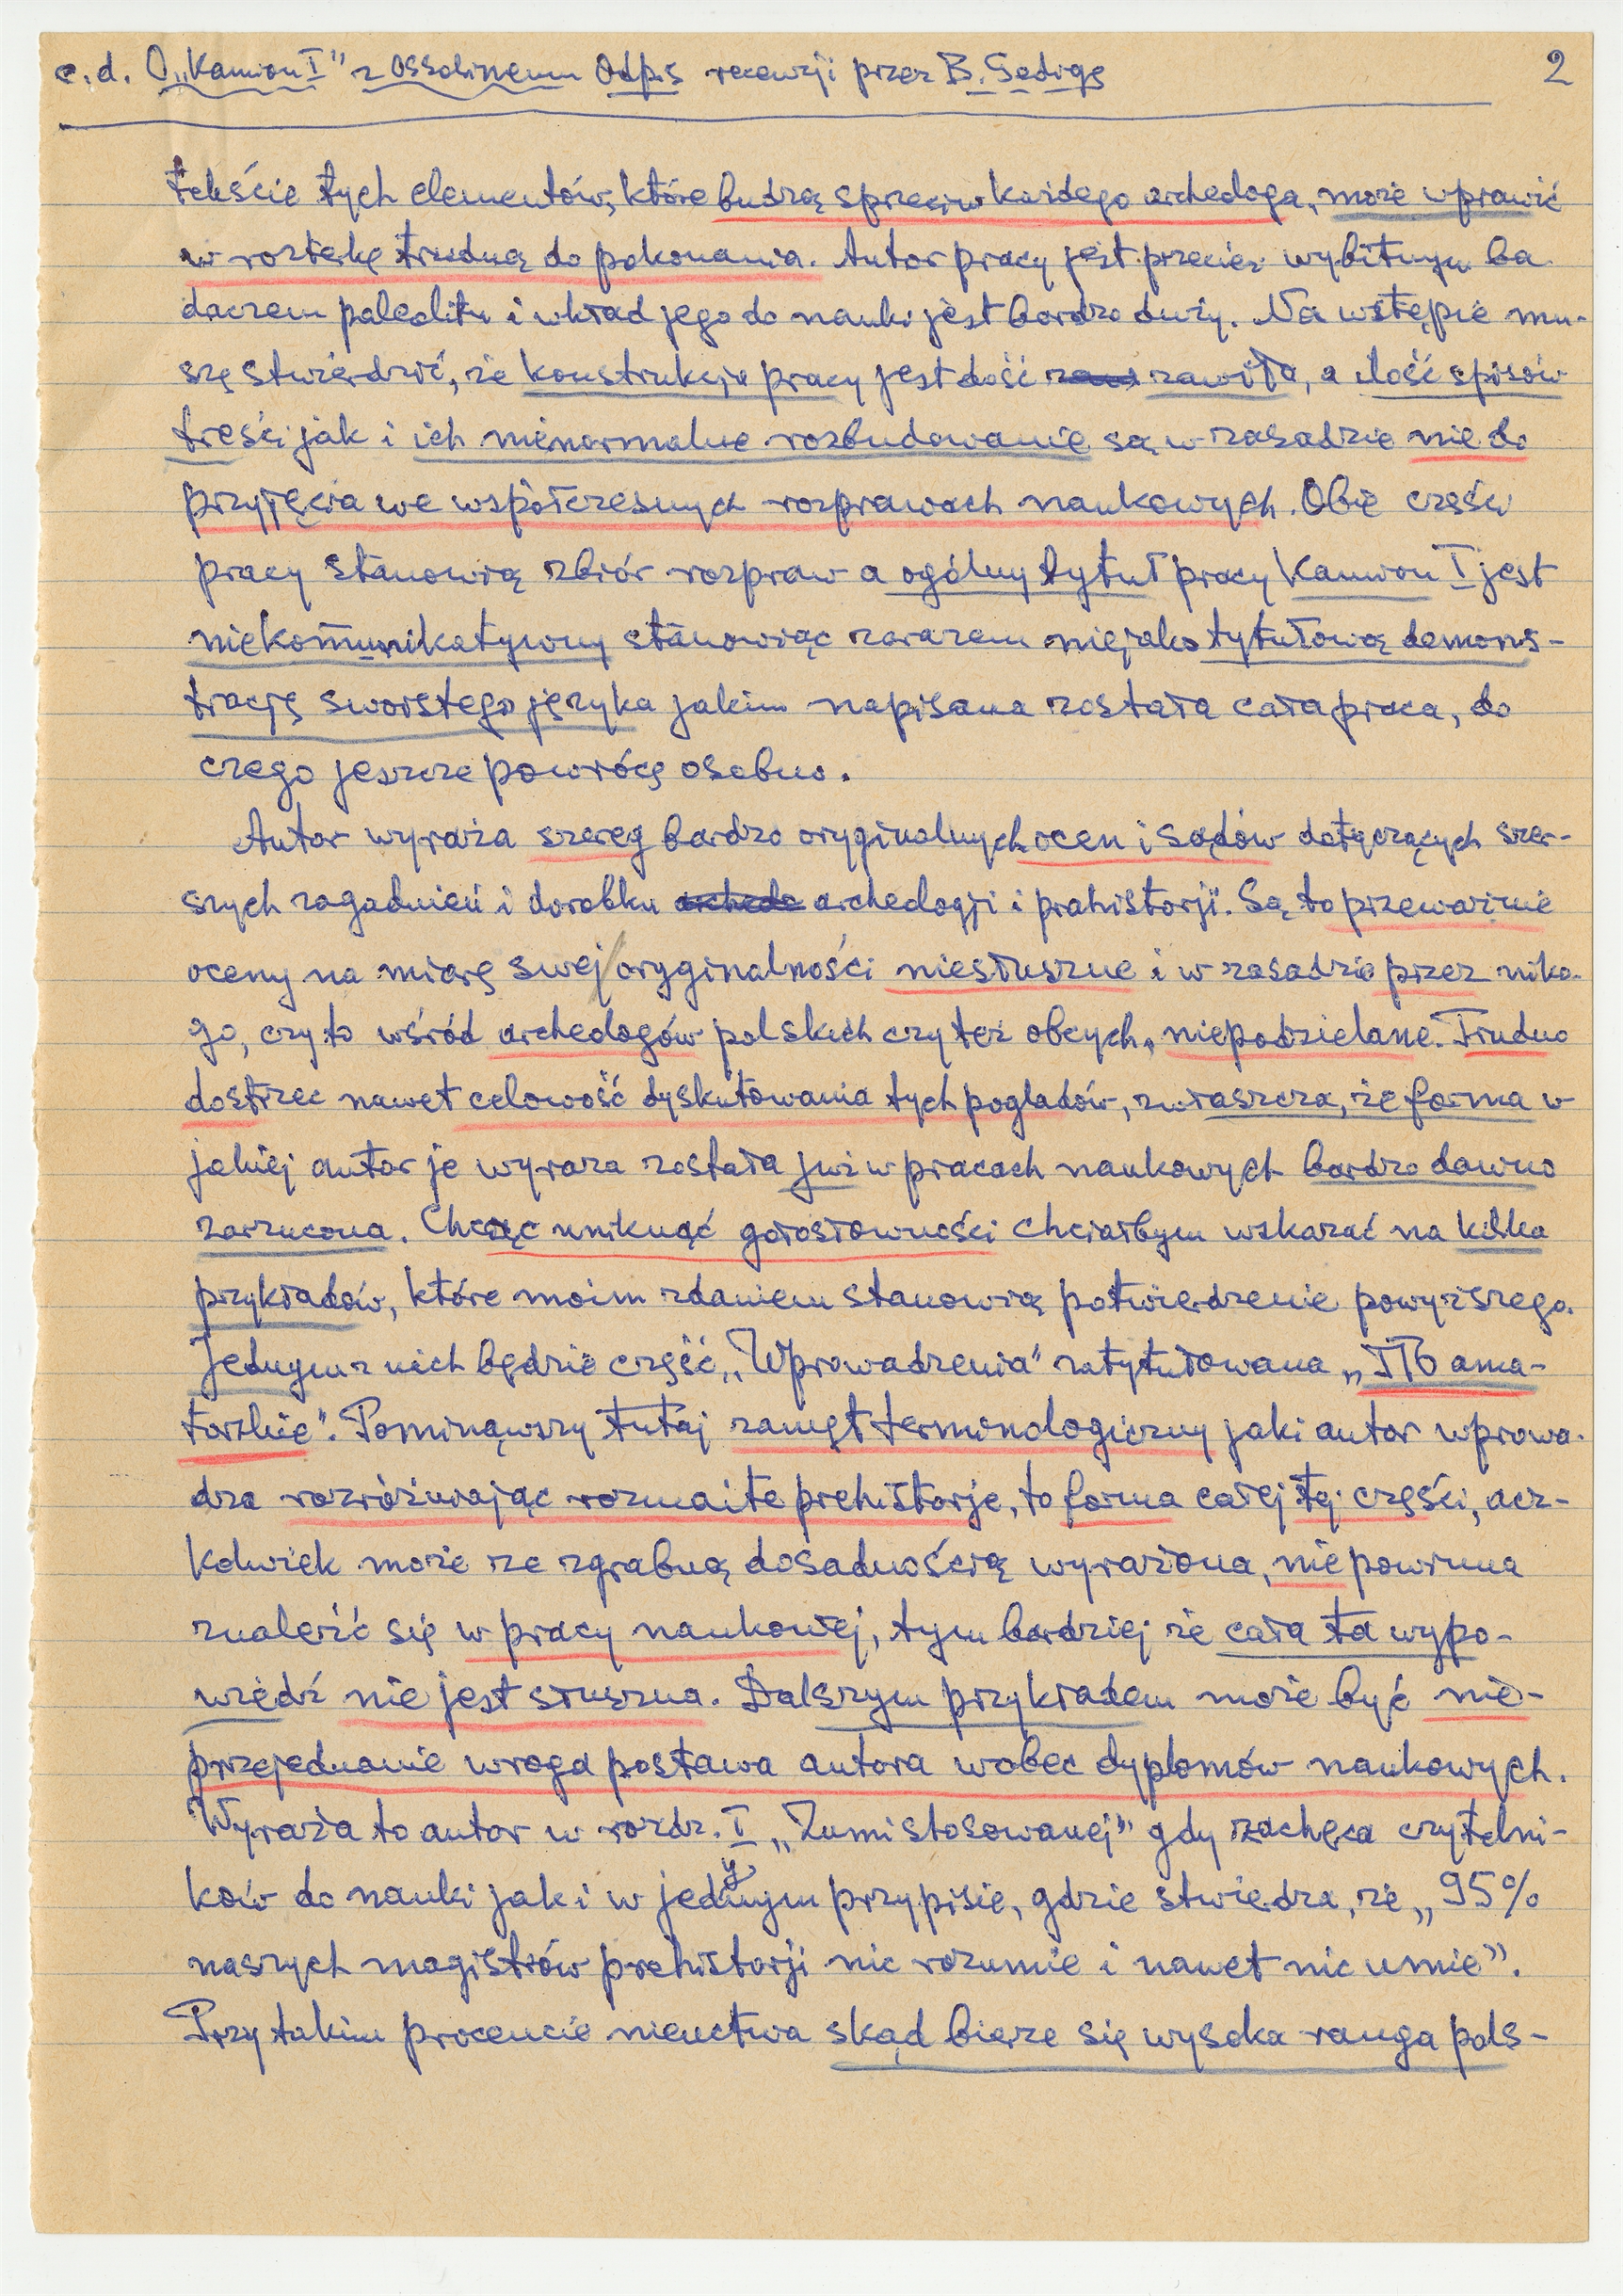 c.d. O „Kamion I" z Ossolineum Odpis recenzji przez B. Gedigę 2
tekście tych elementów, które budzą sprzeciw każdego archeologa, może wprawić
w rozterkę trudną do pokonania. Autor pracy jest przecież wybitnym ba
daczem paleolitu i wkład jego do nauki jest bardzo duży. Na wstępie mu-
szę stwierdzić, że konstrukcja pracy jest dość zawiła, a ilość spisów
treści jak i ich nienormalne rozbudowanie są w zasadzie nie do
przyjęcia we współczesnych rozprawach naukowych. Obie części
pracy stanowią zbiór rozpraw a ogólny tytuł pracy Kamion I jest
niekomunikatywny stanowiąc zarazem niejako tytułową demons-
trację swoistego języka jakim napisana została cała praca, do
czego jeszcze powrócę osobno.
Autor wyraża szereg bardzo oryginalnych ocen i sądów dotyczących szer-
szych zagadnień i dorobku archeologji i prahistorji. Są to przeważnie
oceny na miarę swej oryginalności niesłuszne i w zasadzie przez niko-
go, czy to wśród archeologów polskich czy też obcych, niepodzielane. Trudno
dostrzec nawet celowość dyskutowania tych poglądów, zwłaszcza, że forma w
jakiej autor je wyraża została już w pracach naukowych bardzo dawno
zarzucona. Chcąc uniknąć gołosłowności chciałbym wskazać na kilka
przykładów, które moim zdaniem stanowią potwierdzenie powyższego.
Jednym z nich będzie część „Wprowadzenia" zatytułowana „ΠΓ ama-
torskie". Pominąwszy tutaj zamęt terminologiczny jaki autor wprowa-
dza rozróżniając rozmaite prehistorje, to forma całej tej części, acz-
kolwiek może ze zgrabną dosadnością wyrażona, nie powinna
znaleźć się w pracy naukowej, tym bardziej że cała ta wypo-
wiedź nie jest słuszna. Dalszym przykładem może być nie-
przejednanie wroga postawa autora wobec dyplomów naukowych.
Wyraża to autor w rozdz. I „Zumistosowanej" gdy zachęca czytelni-
ków do nauki jak i w jednym przypisie, gdzie stwierdza, że „95%
naszych magistrów prehistorji nic rozumie i nawet nic umie".
Przy takim procencie nieuctwa skąd bierze się wysoka ranga pols-